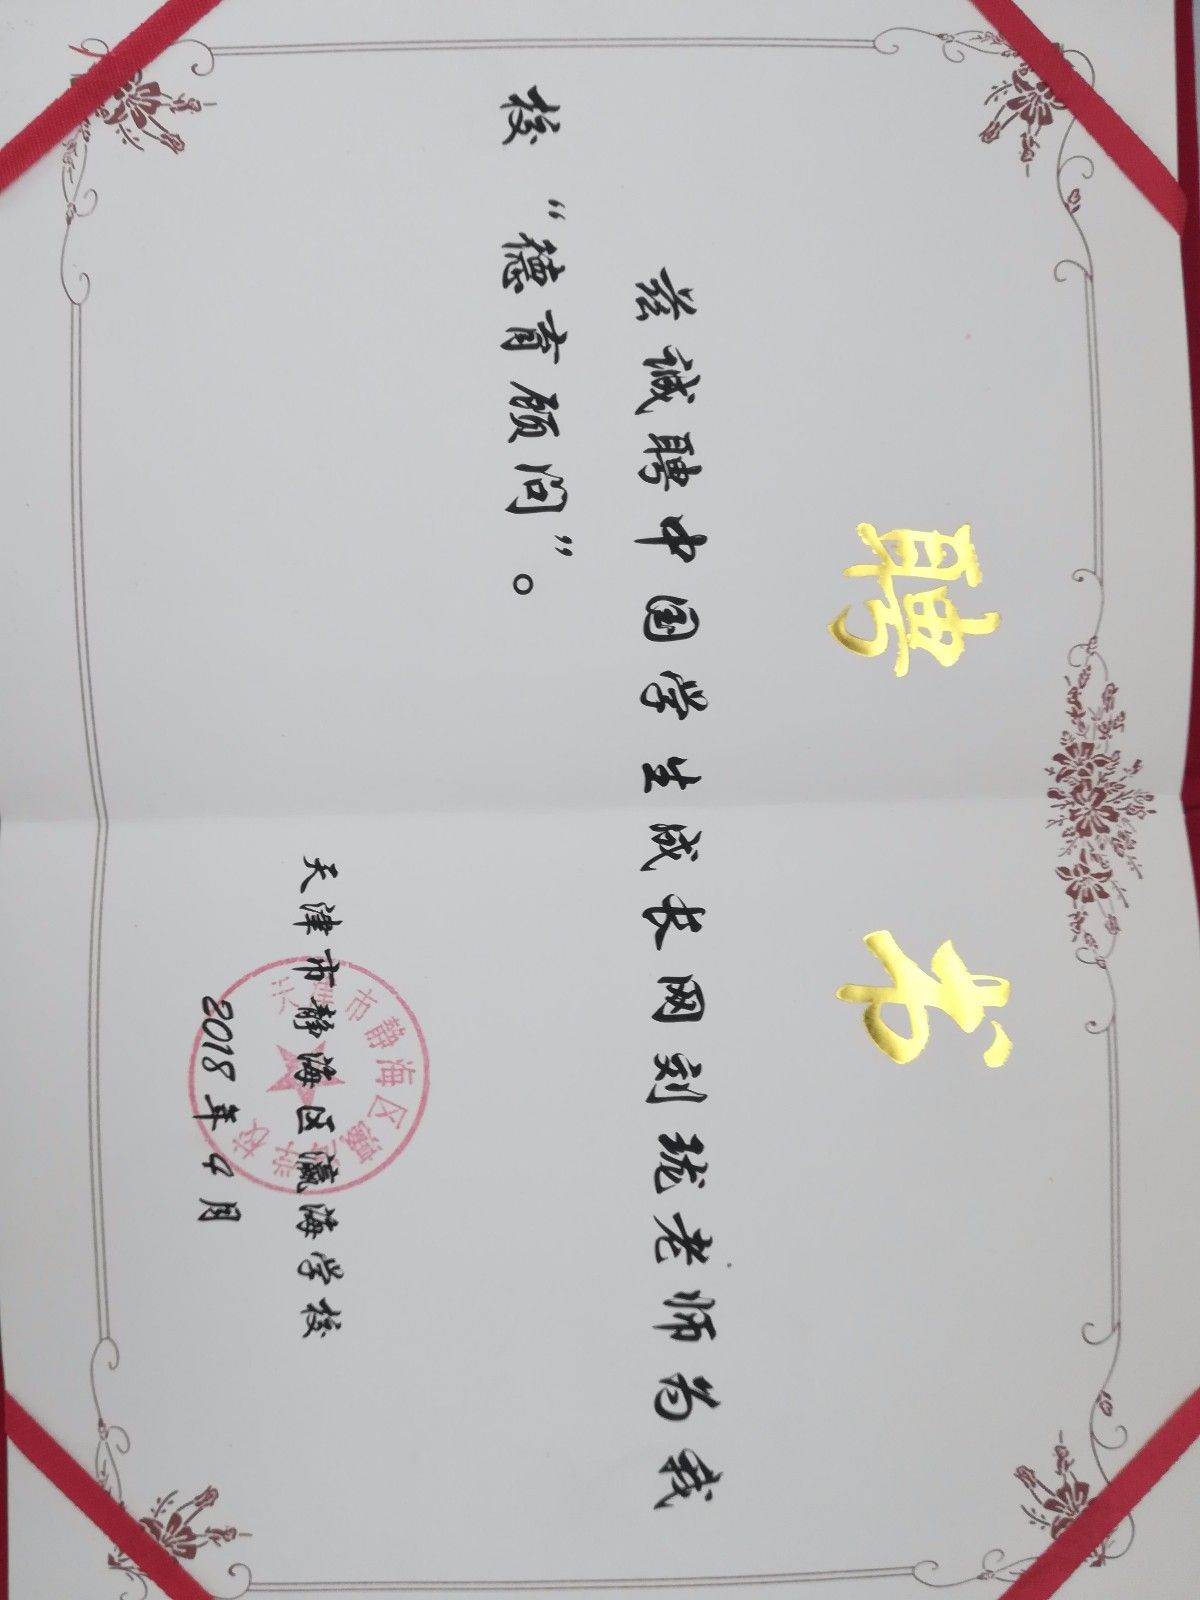 聘书
兹诚聘中国学生成长网刘珑老师为我
校“德育顾问”。
天津市静海区瀛海学校
2018年4月
天津市静海区瀛海学校